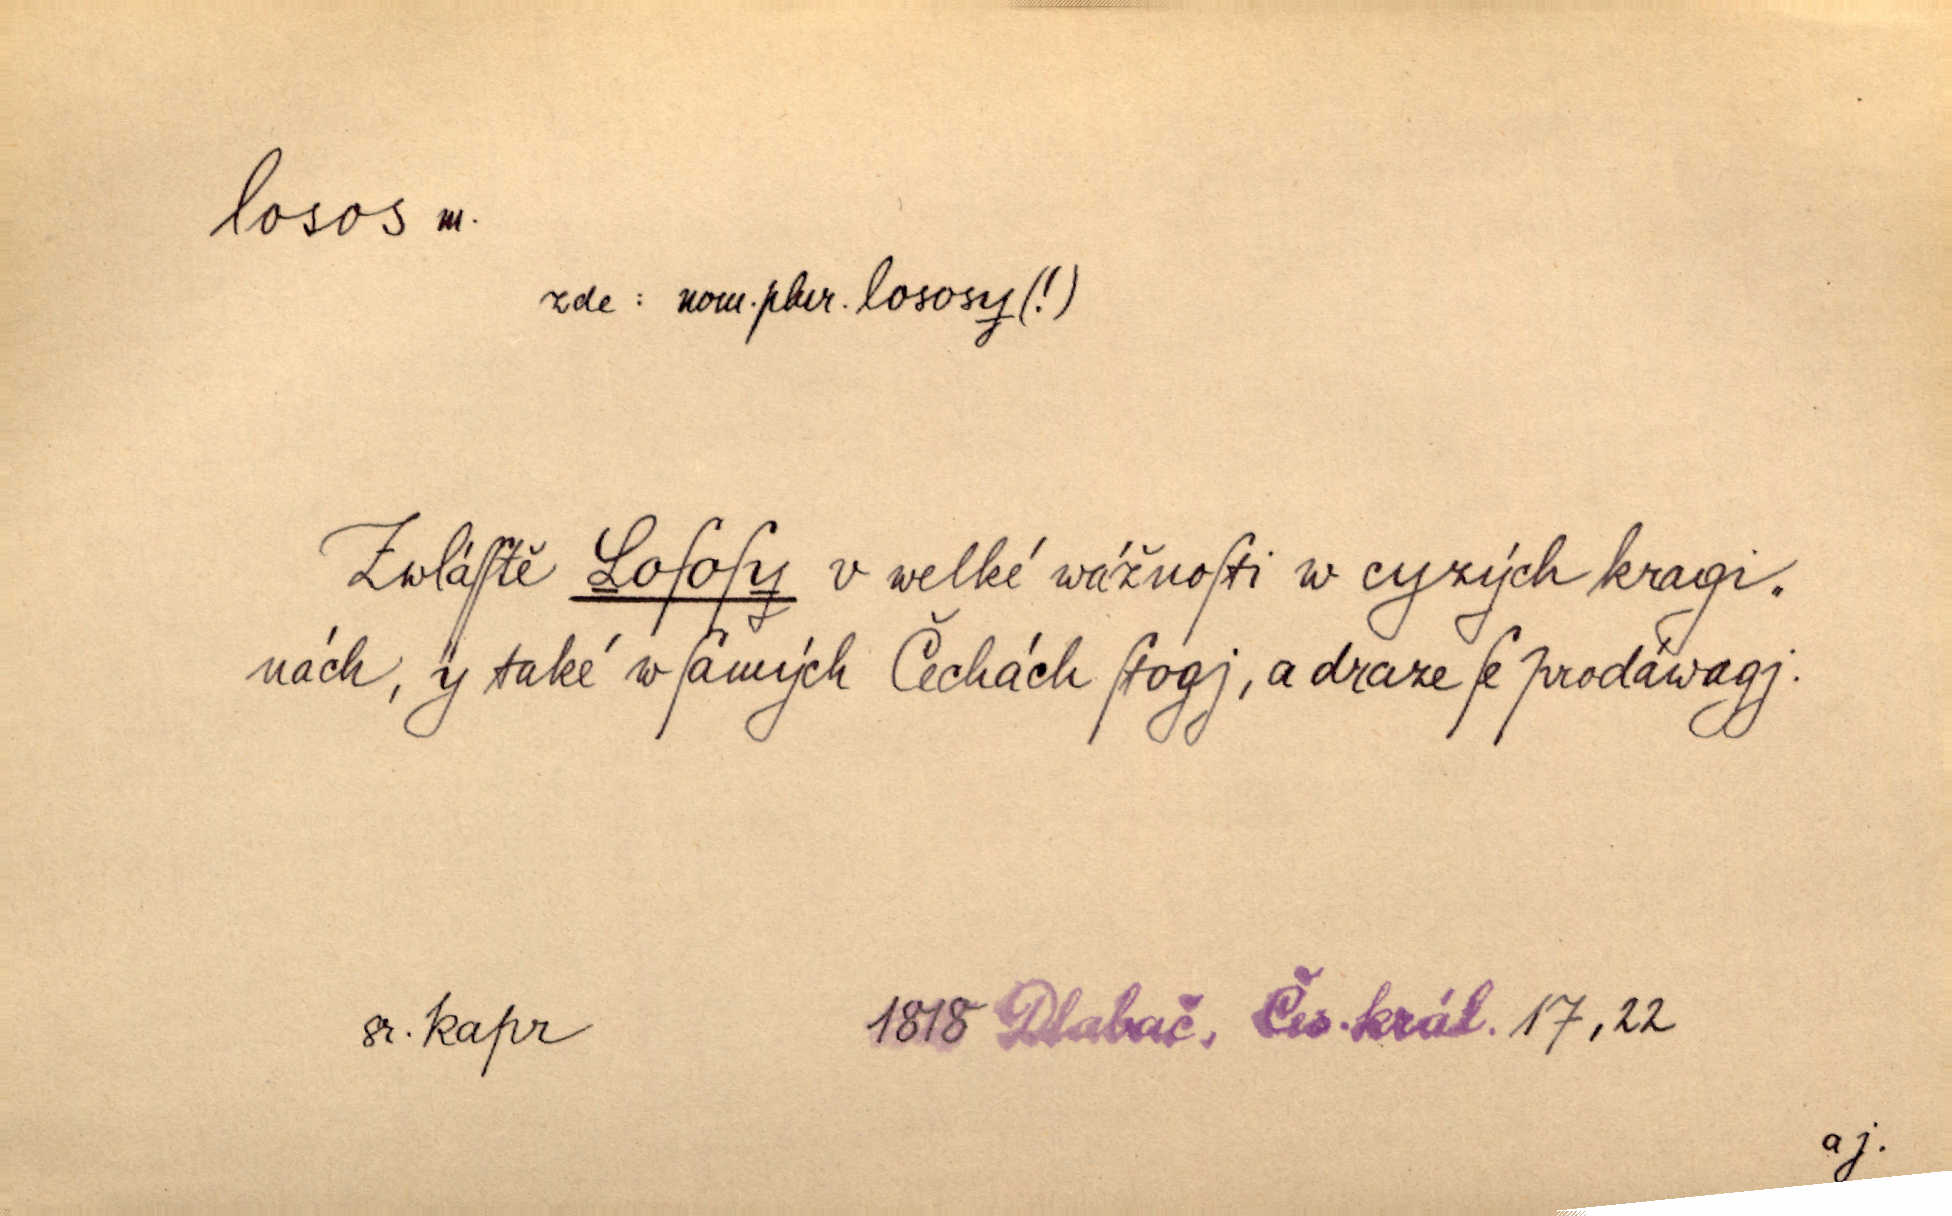 losos m.
zde: nom. plur. lososy (!)
Zwláſſtě Loſoſy v welké wážnoſti w cyzých kragi„
nách, y také w ſamých Čechách ſtogj, a draze ſe prodáwagj.
sr. kapr
1818 Dlabač, Čes. král. 17, 22
aj.